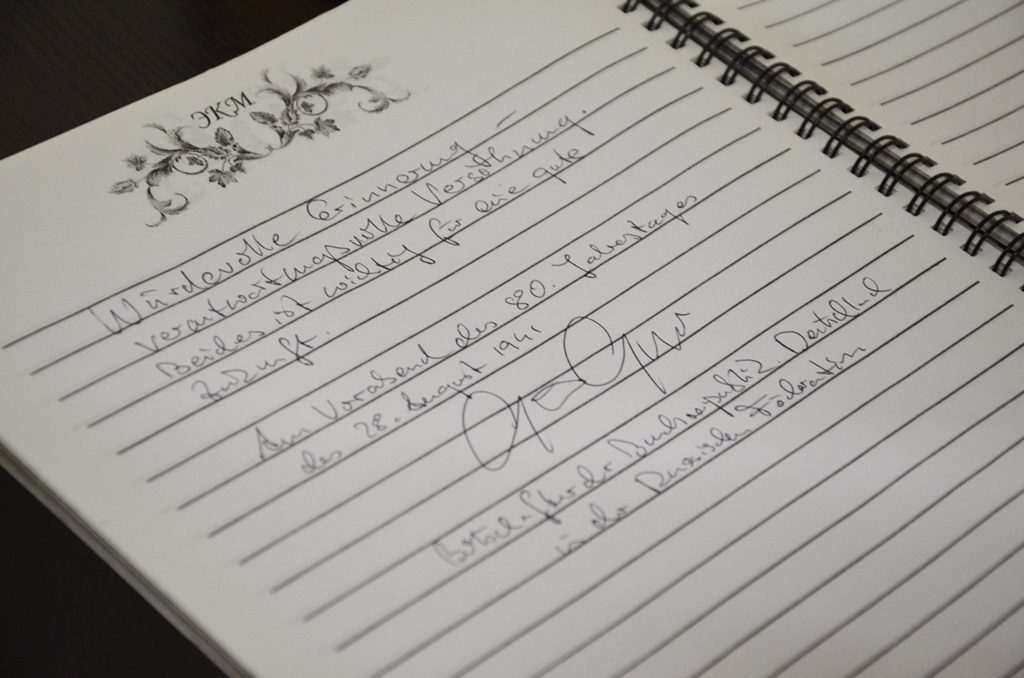 ЭКМ
Würdevolle Erinnerung –
verantwortungsvolle Versöhnung.
Beides ist wichtig für eine gute
Zukunft.
Am Vorabend des 80. Jahrestages
des 28. August 1941
Botschafter der Bundesrepublik Deutschland
in der Russischen Föderation